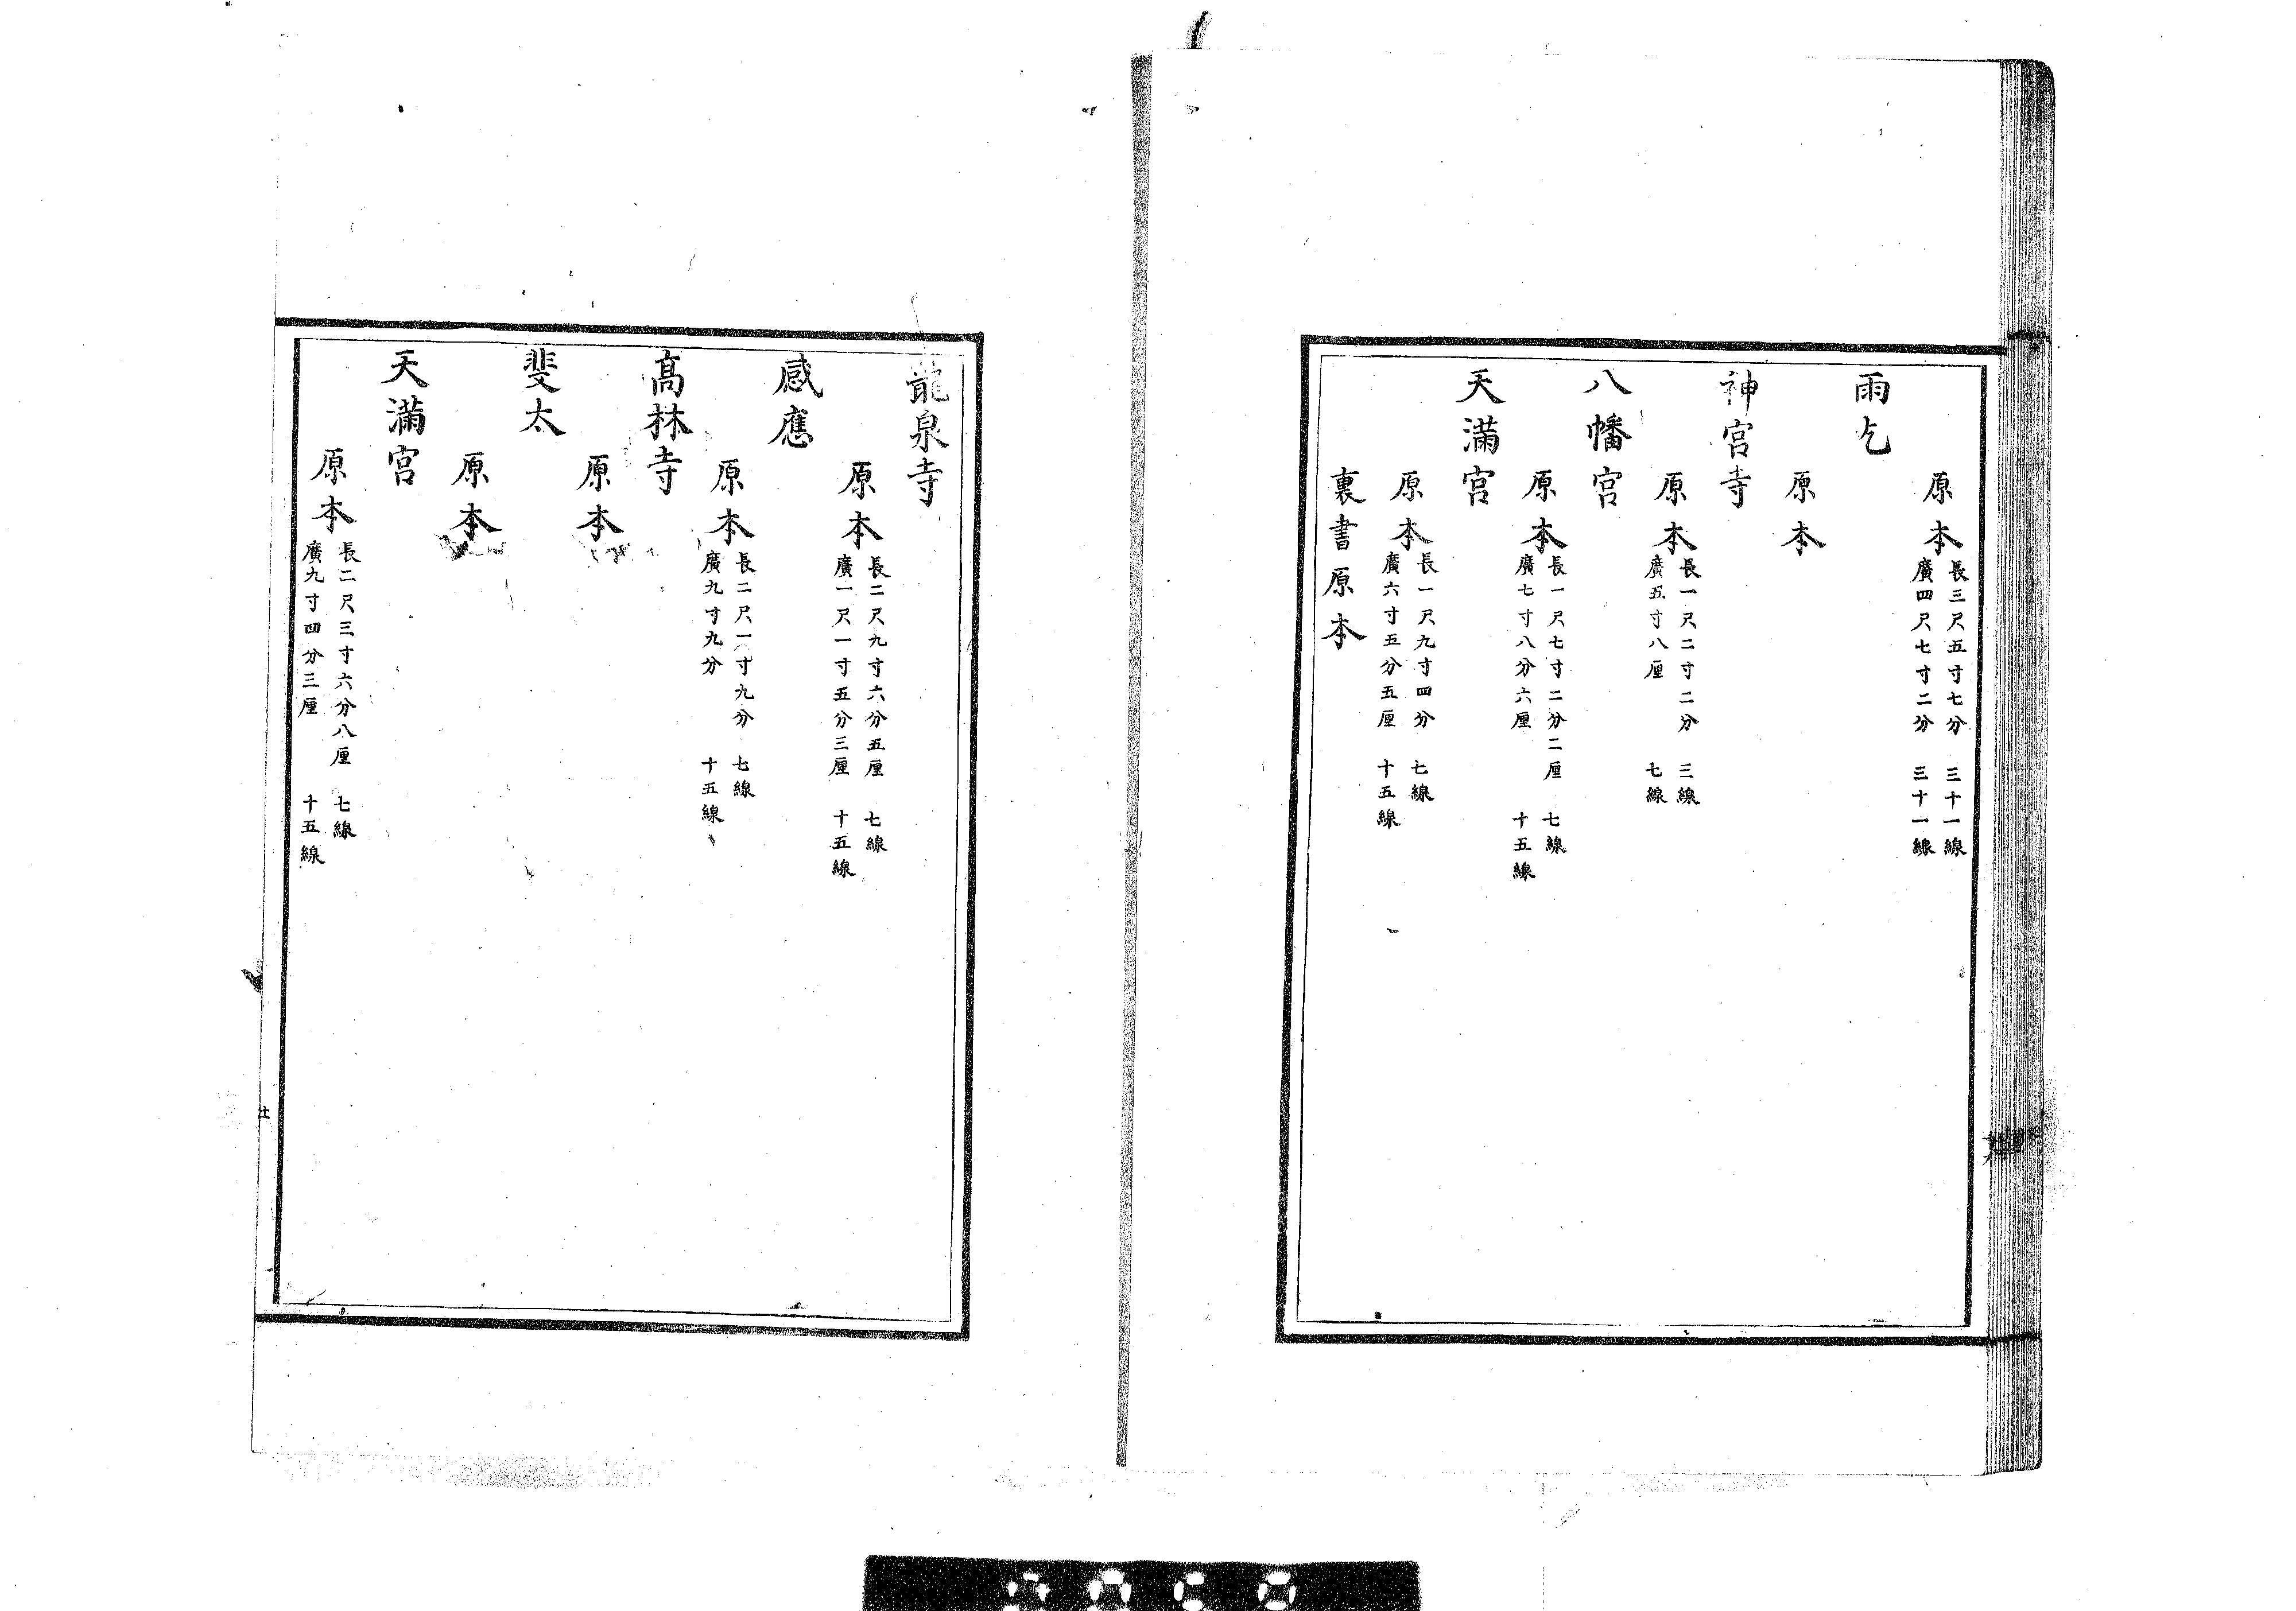 原本 長三尺五寸七分 三十一線
廣四尺七寸二分 三十一線
雨乞
原本
神宮寺
原本 長一尺二寸二分 三線
廣五寸八厘 七線
八幡宮
原本 長一尺七寸二分二厘 七線
廣七寸八分六厘 十五線
天滿宮
原本 長一尺九寸四分 七線
廣六寸五分五厘 十五線
裏書原本
龍泉寺
原本 長二尺九寸六分五厘 七線
廣一尺一寸五分三厘 十五線
感應
原本 長二尺一寸九分 七線
廣九寸九分 十五線
髙林寺
原本
斐太
原本
天滿宮
原本 長二尺三寸六分八厘 七線
廣九寸四分三厘 十五線